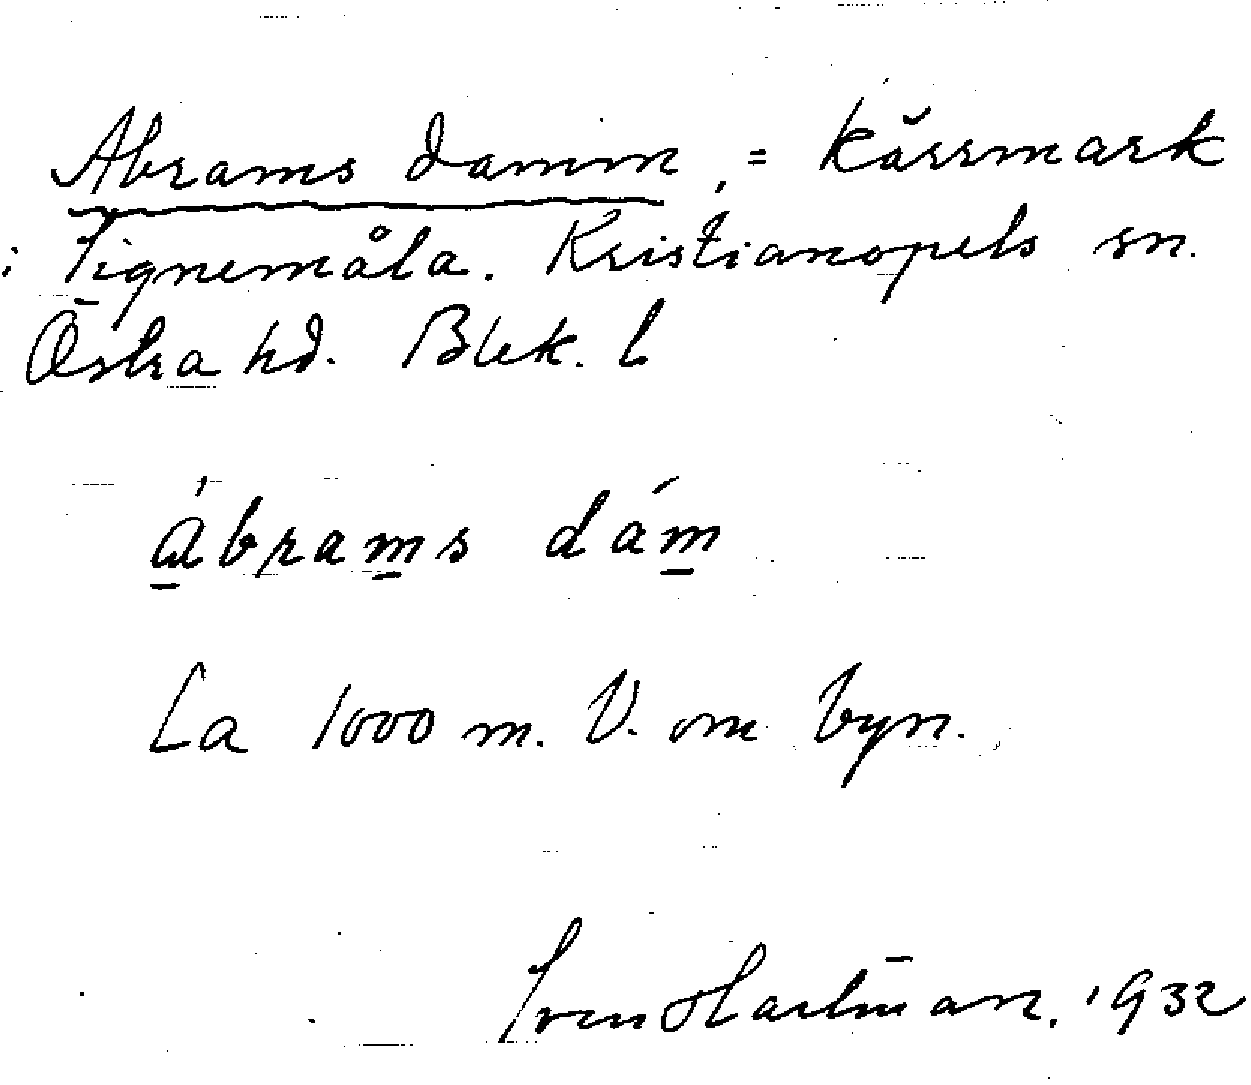 Abrams damm, = kärrmark
i Fignemåla. Kristianopels sn.
Östra hd. Blek. l
ábrams dám
Ca 1000 m. V. om byn.
Sven Hartman. 1932